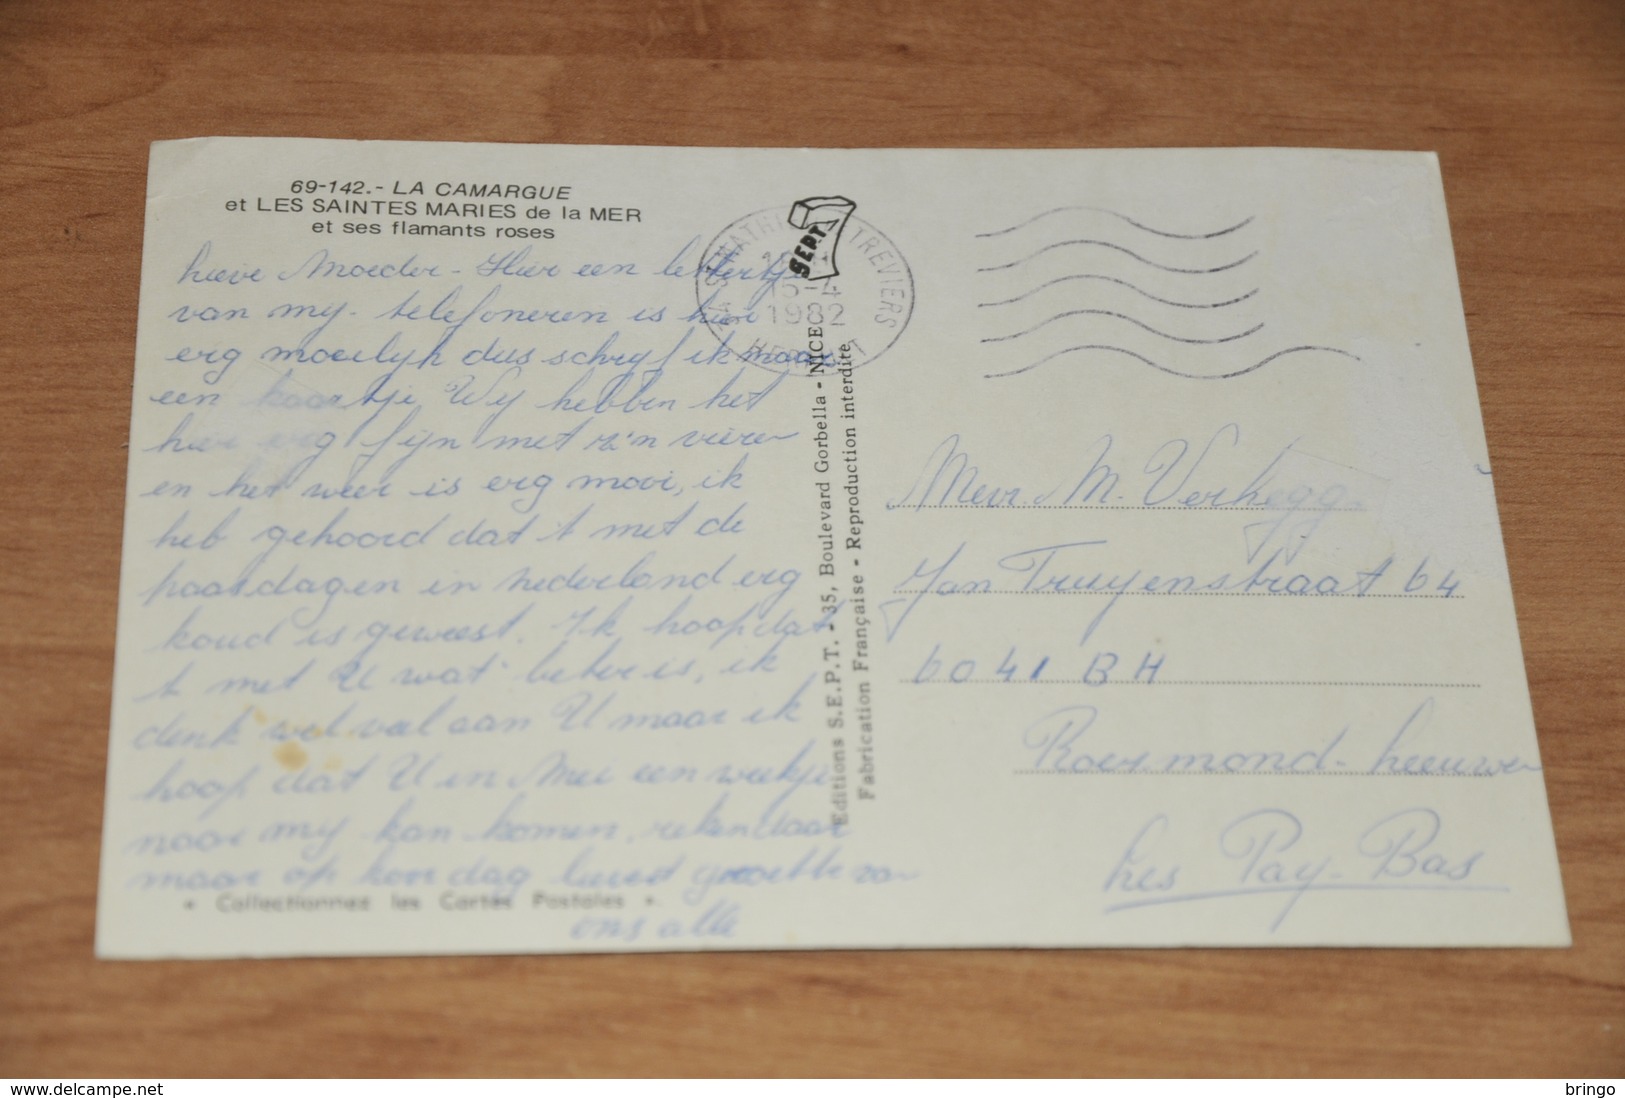 69-142.- LA CAMARGUE
et LES SAINTES MARIES de la MER
et ses flamants roses
lieve Moeder - Hier een lettertje
van my. telefoneren is hier
erg moeilyk dus schryf ik maar
een kaartje Wy hebben het
hier erg fyn met z'n vieren
en het weer is erg mooi, ik
heb gehoord dat 't met de
paasdagen in nederland erg
koud is geweest. Ik hoop dat
't met U wat beter is, ik
denk wel veel aan U maar ik
hoop dat U in Mei een weekje
naar my kan komen, reken daar
maar op hoor dag lieverd van
ons alle
« Collectionnez les Cartes Postales ».
Editions S.E.P.T. - 35, Boulevard Gorbella - NICE
Fabrication Française - Reproduction interdite
SEPT
34 ST MATHIEU DE TREVIERS
1982
HERAULT
Mevr. M. Verhegg
Jan Truyenstraat 64
6041 BH
Roermond - Leeuwen
Les Pay-Bas
delcampe.net
bringo